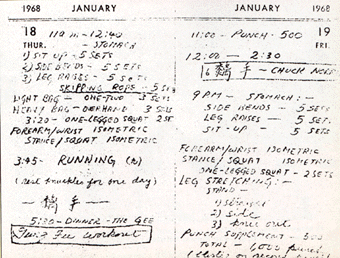 1968 JANUARY
18
THURS.
11 a m - 12:40
- STOMACH
1) SIT UP - 5 SETS
2) SIDE BENDS - 5 SETS
3) LEG RAISES - 5 SETS
SKIPPING ROPE - 3 SETS
LIGHT BAG - ONE-TWO - SETS
HEAVY BAG - OVERHAND SETS
3:20 - ONE-LEGGED SQUAT 2 SETS
FOREARM/WRIST ISOMETRIC
STANCE/SQUAT ISOMETRIC
3:45 - RUNNING
(rest knuckles for one day)
— 手 —
5:30 - DINNER - THE GEE
Kung Fu workout
JANUARY 1968
19
FRI.
11:00 - PUNCH - 500
12:00 - 2:30
手 - CHUCK NORRIS
9 PM - STOMACH :-
SIDE BENDS - 5 SETS
LEG RAISES - 5 SETS
SIT-UP - 5 SETS
FOREARM/WRIST ISOMETRIC
STANCE/SQUAT ISOMETRIC
ONE-LEGGED SQUAT - 2 SETS
LEG STRETCHING :-
STAND -
1) straight
2) side
3) knee out
PUNCH SUPPLEMENT - 500
TOTAL - 1,000 punches